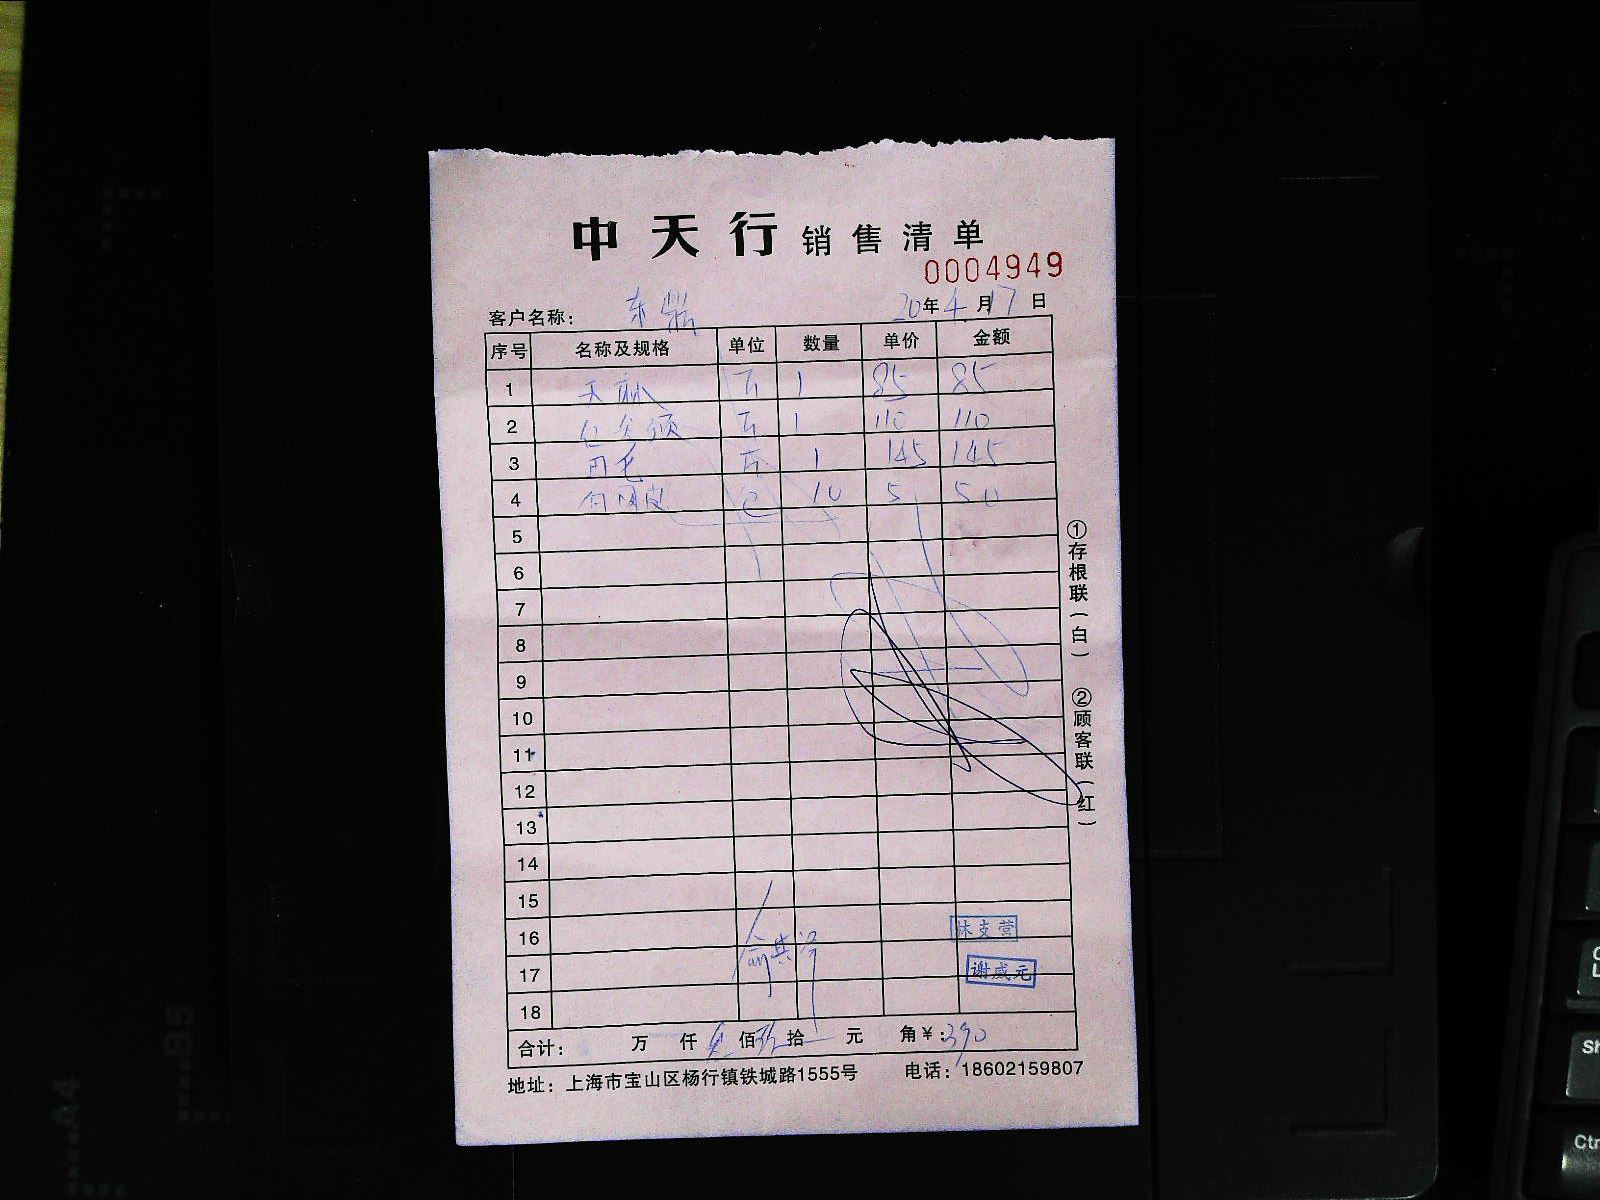 中天行销售清单
0004949
客户名称： 东
20年4月17日
序号 名称及规格 单位 数量 单价 金额
1 天 1 85 85
2 1 110 110
3 1 145 145
4 包 10 5 50
5
6
7
8
9
10
11
12
13
14
15
16 林支营
17 谢咸元
18
合计： 万 仟 佰 拾 元 角 ¥：390
地址：上海市宝山区杨行镇铁城路1555号 电话：18602159807
①存根联(白) ②顾客联(红)